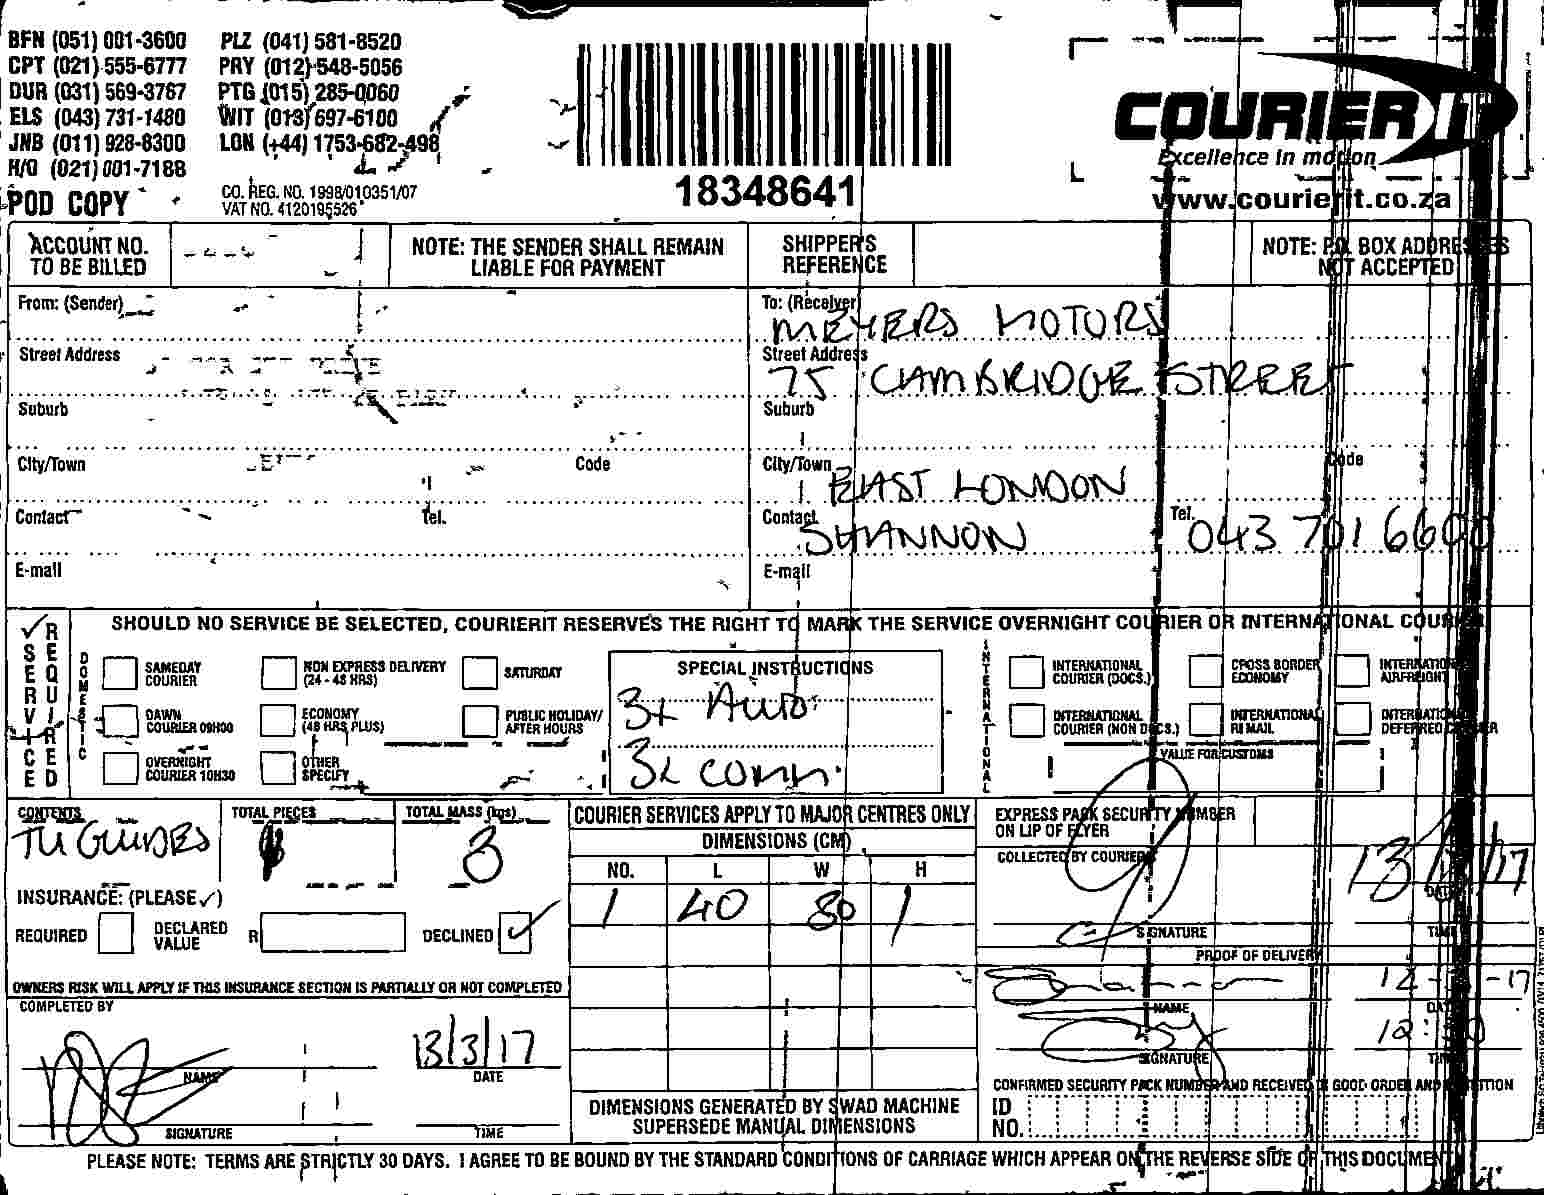 BFN (051) 001-3600 PLZ (041) 581-8520
CPT (021) 555-6777 PRY (012) 548-5056
DUR (031) 569-3767 PTG (015) 285-0060
ELS (043) 731-1480 WIT (013) 697-6100
JNB (011) 928-8300 LON (+44) 1753-682-498
H/O (021) 001-7188
POD COPY
CO. REG. NO. 1998/010351/07
VAT NO. 4120195526
18348641
COURIER IT
Excellence in motion
www.courierit.co.za
ACCOUNT NO. TO BE BILLED
NOTE: THE SENDER SHALL REMAIN LIABLE FOR PAYMENT
SHIPPER'S REFERENCE
NOTE: P.O. BOX ADDRESSES NOT ACCEPTED
From: (Sender)
Street Address
Suburb
City/Town Code
Contact Tel.
E-mail
To: (Receiver)
MEYERS MOTORS
Street Address
75 CAMBRIDGE STREET
Suburb
City/Town Code
EAST LONDON
Contact SHANNON Tel. 043 701 6600
E-mail
SERVICE REQUIRED
SHOULD NO SERVICE BE SELECTED, COURIERIT RESERVE'S THE RIGHT TO MARK THE SERVICE OVERNIGHT COURIER OR INTERNATIONAL COURIER
DOMESTIC
SAMEDAY COURIER
NON EXPRESS DELIVERY (24 - 48 HRS)
SATURDAY
DAWN COURIER 09H00
ECONOMY (48 HRS PLUS)
PUBLIC HOLIDAY/ AFTER HOURS
OVERNIGHT COURIER 10H30
OTHER SPECIFY
SPECIAL INSTRUCTIONS
3x Auto
3x comm.
INTERNATIONAL
INTERNATIONAL COURIER (DOCS.)
CROSS BORDER ECONOMY
INTERNATIONAL AIRFREIGHT
INTERNATIONAL COURIER (NON DOCS.)
INTERNATIONAL REMAIL
INTERNATIONAL DEFERRED COURIER
VALUE FOR CUSTOMS
CONTENTS
TU GUIDES
TOTAL PIECES
TOTAL MASS (kgs)
3
INSURANCE: (PLEASE ✓)
REQUIRED
DECLARED VALUE R
DECLINED ✓
OWNERS RISK WILL APPLY IF THIS INSURANCE SECTION IS PARTIALLY OR NOT COMPLETED
COMPLETED BY
13/3/17
NAME DATE
SIGNATURE TIME
COURIER SERVICES APPLY TO MAJOR CENTRES ONLY
DIMENSIONS (CM)
NO. L W H
1 40 30 1
DIMENSIONS GENERATED BY SWAD MACHINE SUPERSEDE MANUAL DIMENSIONS
EXPRESS PACK SECURITY NUMBER ON LIP OF FLYER
COLLECTED BY COURIER
DATE
SIGNATURE TIME
PROOF OF DELIVERY
Shannon
NAME DATE
SIGNATURE TIME
CONFIRMED SECURITY PACK NUMBER AND RECEIVED IN GOOD ORDER AND CONDITION
ID NO.
PLEASE NOTE: TERMS ARE STRICTLY 30 DAYS. I AGREE TO BE BOUND BY THE STANDARD CONDITIONS OF CARRIAGE WHICH APPEAR ON THE REVERSE SIDE OF THIS DOCUMENT